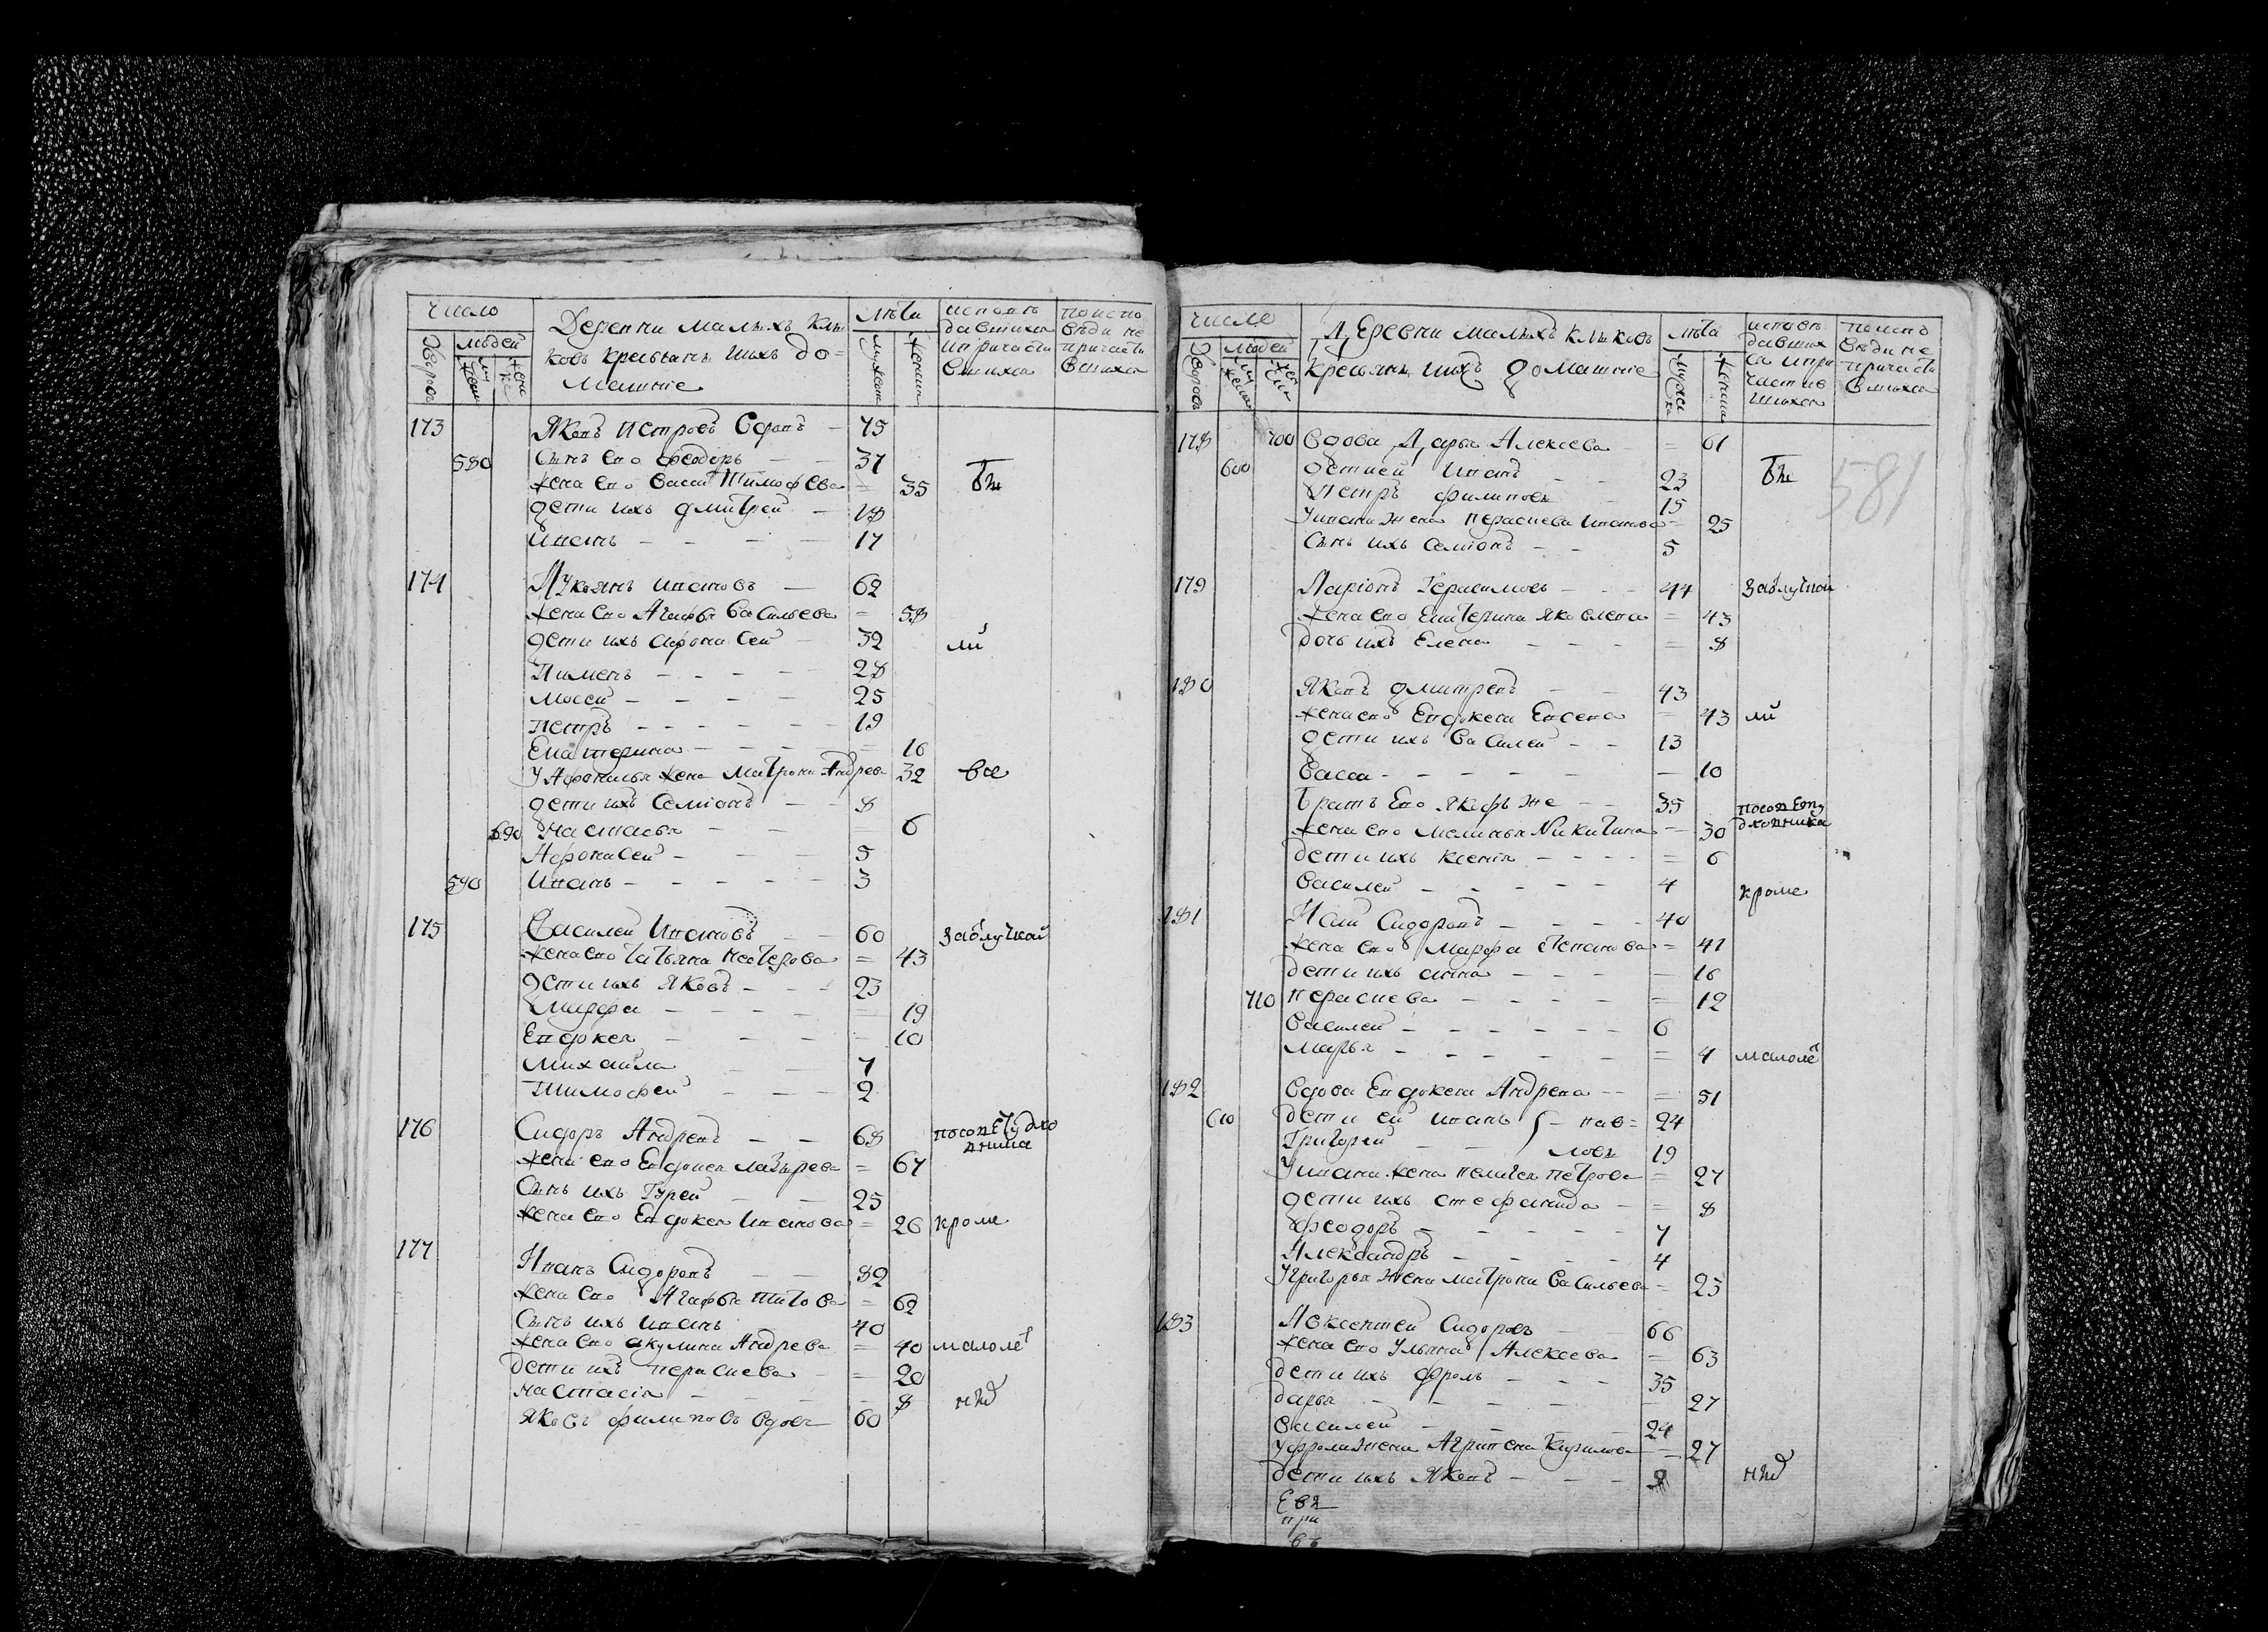 число
людей
Деревни малыхъ клы
ковъ крестьянъ ихъ до=
машние
лѣта
исповѣ
давшихся
и причасти
вшихся
по испо
вѣди не
причасти
вшихся
173 Яковъ Петровъ вдовъ — 75
580 Сынъ его Феодоръ — — 37
жена его васса Тимофѣева = 35 бы
дети ихъ дмитрей — 18
иванъ — — — — 17
174 Лукьянъ ивановъ — 62
жена его Агафья васильева = 58
дети ихъ афонасей — 32 ли
Пименъ — — — — 28
мосей — — — — 25
петръ — — — — 19
Екатерина — — — = 16
У Афонасья жена Матрона Андрева 32 все
дети ихъ Семионъ — — 8
690 настасья — — — 6
Афонасей — — — 5
590 иванъ — — — — 3
175 Василей Ивановъ — — 60 за отлучкой
жена его Татьяна = 43
дети ихъ Яковъ — — — 23
Марфа — — — — = 19
Евдокея — — — — 10
михайла — — 7
Тимофей — — — 2
176 Сидоръ Андревъ — — 68
жена его Евдокея лазырева = 67
Сынъ ихъ Гурей — — 25
жена его Евдокея иванова = 26 кроме
177 Иванъ Сидоровъ — — 82
жена его Агафья титова = 62
Сынъ ихъ иванъ 40
жена его акулина Андрева = 40 малолет
дети ихъ параскева — = 20
настасия — — — — 8
Яковъ филиповъ вдовъ 60
число
людей
Деревни малыхъ клыковъ
крестьянъ ихъ домашние
лѣта
исповѣ
давших
ся и при
частив
шихся
по испо
вѣди не
причасти
вшихся
178 700 вдова Дарья Алексева = 61
600 детией иванъ — — 23 бы
Петръ филиповы 15
581
У ивана жена параскева иванова = 25
Сынъ ихъ Семионъ — — 5
179 Ларионъ Герасимовъ — — — 44 за отлучкой
жена его Екатерина яковлева = 43
дочь ихъ Елена — — — = 8
180 Яковъ дмитревъ — — 43
жена его Евдокея = 43 ли
дети ихъ василей — — 13
васса — — — — — — 10
братъ Его яковъ же — — 35
жена его маланья Никитина = 30
дети ихъ ксения — — — — = 6
василей — — — — — 4 кроме
181 Сидоровъ — — — — 40
жена его Марфа степанова = 41
дети ихъ анна — — — — — 16
710 параскева — — — — — = 12
василей — — — — — — 6
марья — — — — — — = 4 малоле
182 вдова Евдокея Андрева — — = 51
610 дети ей иванъ — пав= 24
Григорей — — ловы 19
У ивана жена пелагея петрова = 27
дети ихъ стефанида — = 8
феодоръ — — — — — 7
Александръ — — — — 4
У григорья жена матрона васильева = 25
183 Авксентей Сидоровъ — — 66
жена его Ульяна Алексеева — 63
дети ихъ фролъ — — — 35
дарья — — — — — — 27
василей — — — — 24
У фрола жена Агрипена Кирилова — 27
дети ихъ Яковъ — — — 8